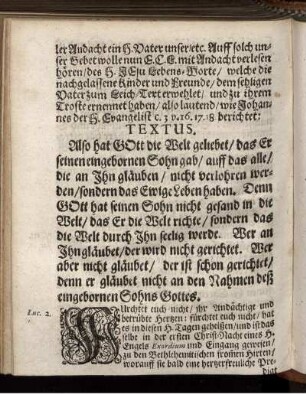 ler Andacht ein H. Vater unser/etc. Auff solch un-
ser Gebet wolle nun E.C.E. mit Andacht verlesen
hören/des H. JEsu Lebens-Worte/ welche die
nachgelassene Kinder und Freunde/ dem sehligen
Vater zum Leich-Text erwehlet/ und zu ihrem
Troste ernennet haben/ also lautend/ wie Johan-
nes der H. Evangelist c. 3 v. 16. 17. 18 berichtet:
TEXTUS.
Also hat GOtt die Welt geliebet/ das Er
seinen eingebornen Sohn gab/ auff das alle/
die an Ihn gläuben/ nicht verlohren wer-
den/ sondern das Ewige Leben haben. Denn
GOtt hat seinen Sohn nicht gesand in die
Welt/ das Er die Welt richte/ sondern das
die Welt durch Ihn seelig werde. Wer an
Ihn gläubet/ der wird nicht gerichtet. Wer
aber nicht gläubet/ der ist schon gerichtet/
denn er gläubet nicht an den Nahmen deß
eingebornen Sohns Gottes.
Luc. 2.
FUrchtet euch nicht/ ihr Andächtige und
betrübte Hertzen: fürchtet euch nicht/ hat
es in diesen H. Tagen geheißen/ und ist das
selbe in der ersten Christ-Nacht eines H.
Engels Exordium und Eingang gewesen/
zu den Bethlehemitischen frommen Hirten/
worauff sie bald eine hertzerfreuliche Pre-
digt